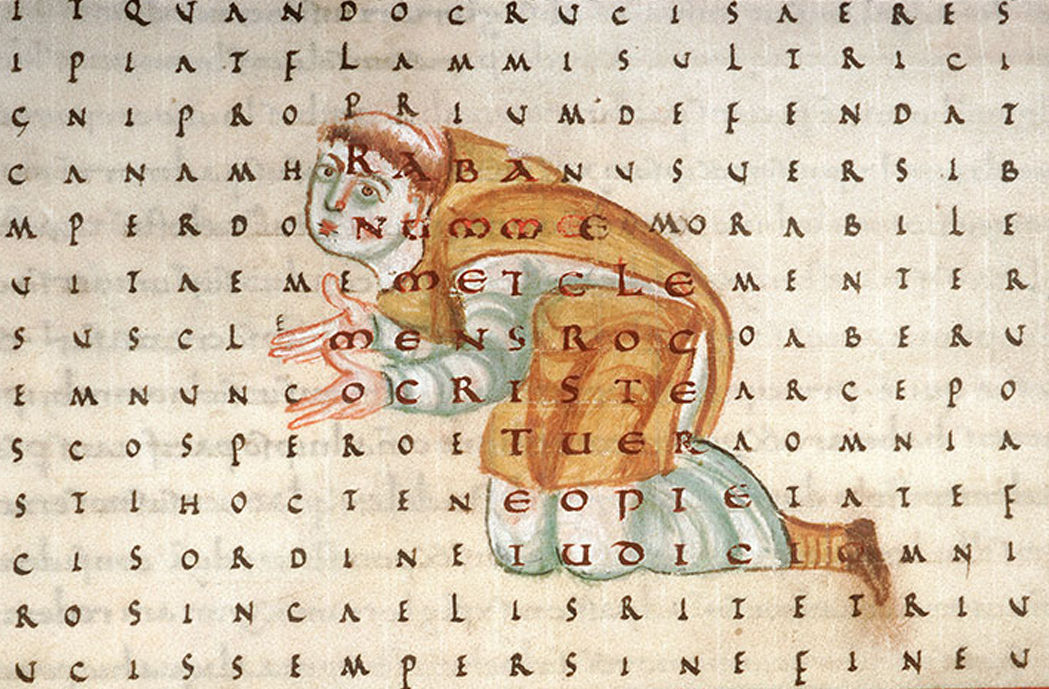 I T Q U A N D O C R U C I S A E R E S
I P I A T F L A M M I S U L T R I C I
Ę N I P R O P R I U M D E F E N D A T
C A N A M H R A B A N U S U E R S I B
M P E R D O N U M M E M O R A B I L E
U I T A E M E M E T C L E M E N T E R
S U S C L E M E N S R O G O A B E R U
E M N U N C O C R I S T E A R C E P O
S C O S P E R O E T U E R A O M N I A
S T I H O C T E N E O P I E T A T E F
C I S O R D I N E I U D I C I O M N I
R O S I N C A E L I S R I T E T R I U
U C I S S E M P E R S I N E F I N E U